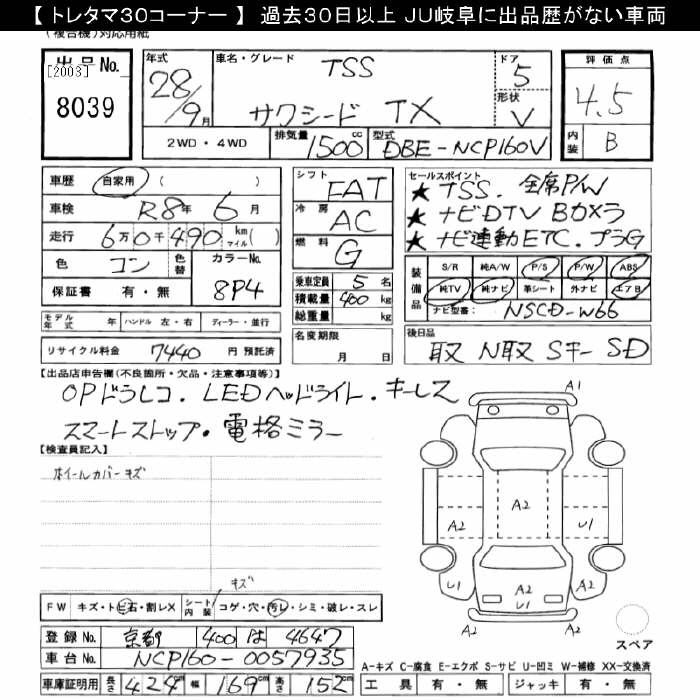 【 トレタマ30コーナー 】 過去30日以上 JU岐阜に出品歴がない車両
(複合機)対応用紙
出品No.
[2003]
8039
年式
28/9月
車名・グレード
TSS
サクシード TX
ドア
5
形状
V
評価点
4.5
内装
B
2WD ・ 4WD
排気量
1500cc
型式
DBE-NCP160V
車歴 自家用 ( )
車検 R8年 6月
走行 6万0千490 km マイル( )
色 コン
色替
カラーNo.
8P4
保証書 有・無
シフト
FAT
冷房
AC
燃料
G
乗車定員 5名
積載量 400kg
総重量 kg
セールスポイント
★ TSS. 全席P/W
★ ナビDTV Bカメラ
★ ナビ連動ETC. プラG
装備品
S/R 純A/W P/S P/W ABS
純TV 純ナビ 革シート 外ナビ エアB
ナビ型番: NSCD-W66
モデル年式 年 ハンドル 左・右 ディーラー・並行
リサイクル料金 7440 円 預託済
名変期限
月 日
後日品
取 N取 Sキー SD
【出品店申告欄(不良箇所・欠品・注意事項等)】
OPドラレコ. LEDヘッドライト. キーレス
スマートストップ・電格ミラー
【検査員記入】
ホイールカバーキズ
A1
A2
A2
A2
U1
U1
A2
U1
A2
キズ
FW キズ・トビ石・割レX
シート内装
コゲ・穴・汚レ・シミ・破レ・スレ
スペア
登録No. 京都 400 は 4647
車台No. NCP160-0057935
車庫証明用 長さ 424cm 幅 169cm 高さ 152cm
A-キズ C-腐食 E-エクボ S-サビ U-凹ミ W-補修 XX-交換済
工具 有・無 ジャッキ 有・無